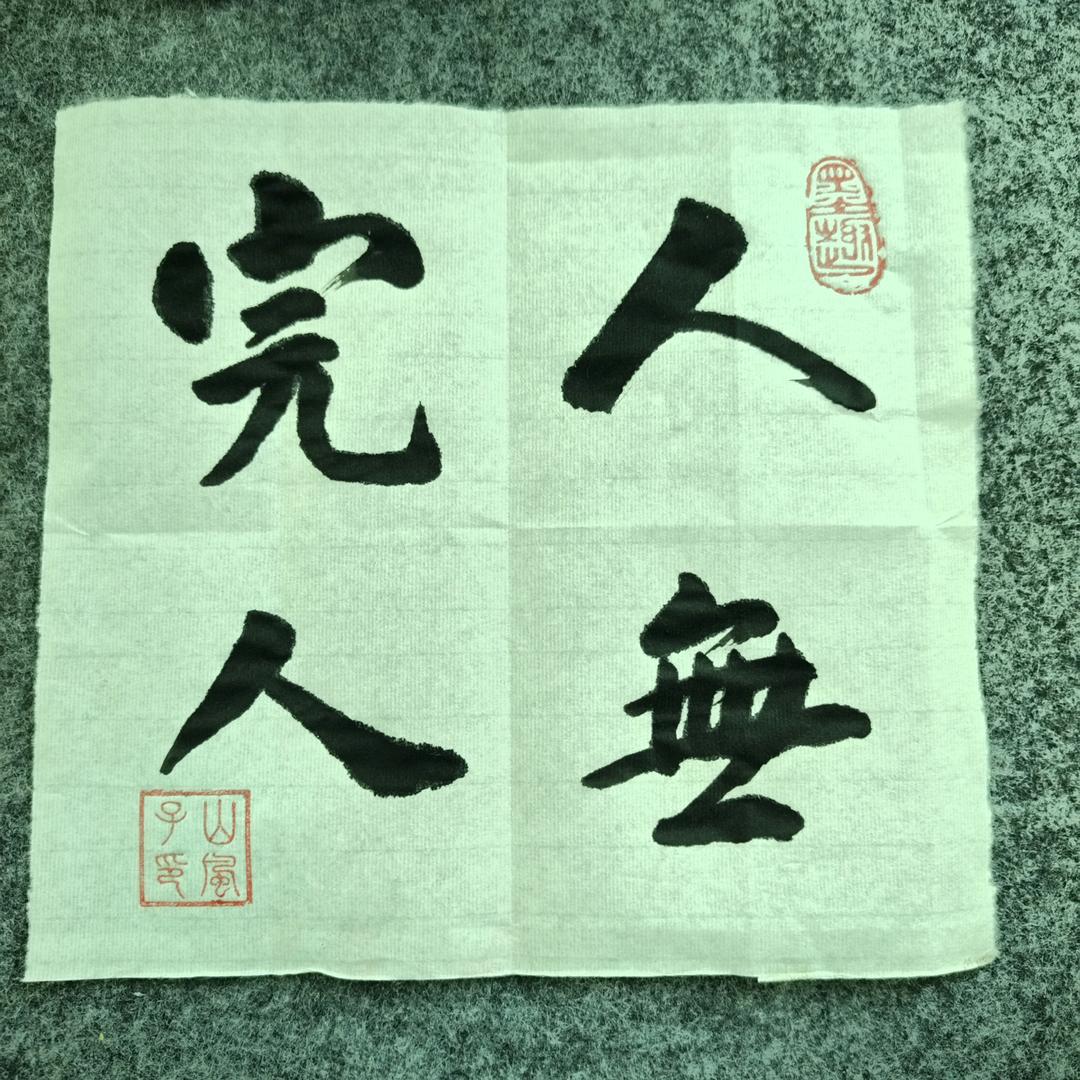 人無
完人
墨趣
山風
子印